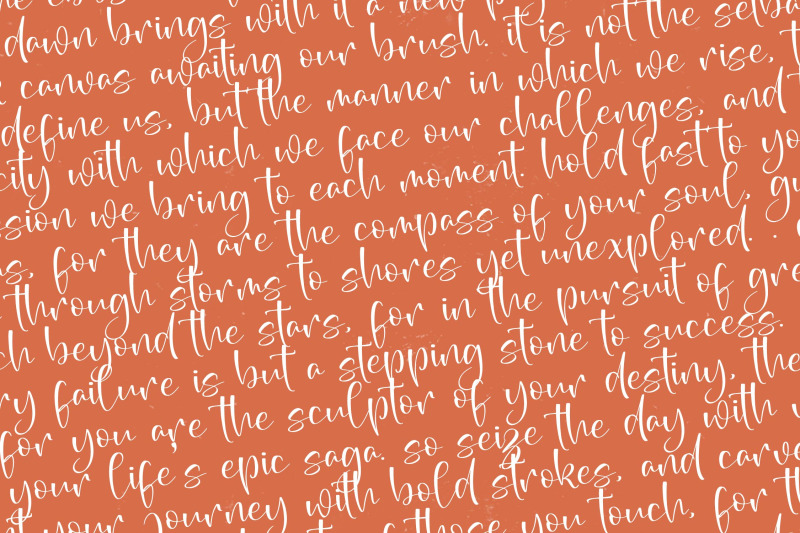 dawn brings with it a new p
canvas awaiting our brush. it is not the setba
define us, but the manner in which we rise, t
city with which we face our challenges, and
ssion we bring to each moment. hold fast to yo
s, for they are the compass of your soul, gu
through storms to shores yet unexplored. .
ch beyond the stars, for in the pursuit of gre
ry failure is but a stepping stone to success.
for you are the sculptor of your destiny, the
your life's epic saga. so seize the day with
t your journey with bold strokes, and carve
of those you touch, for th